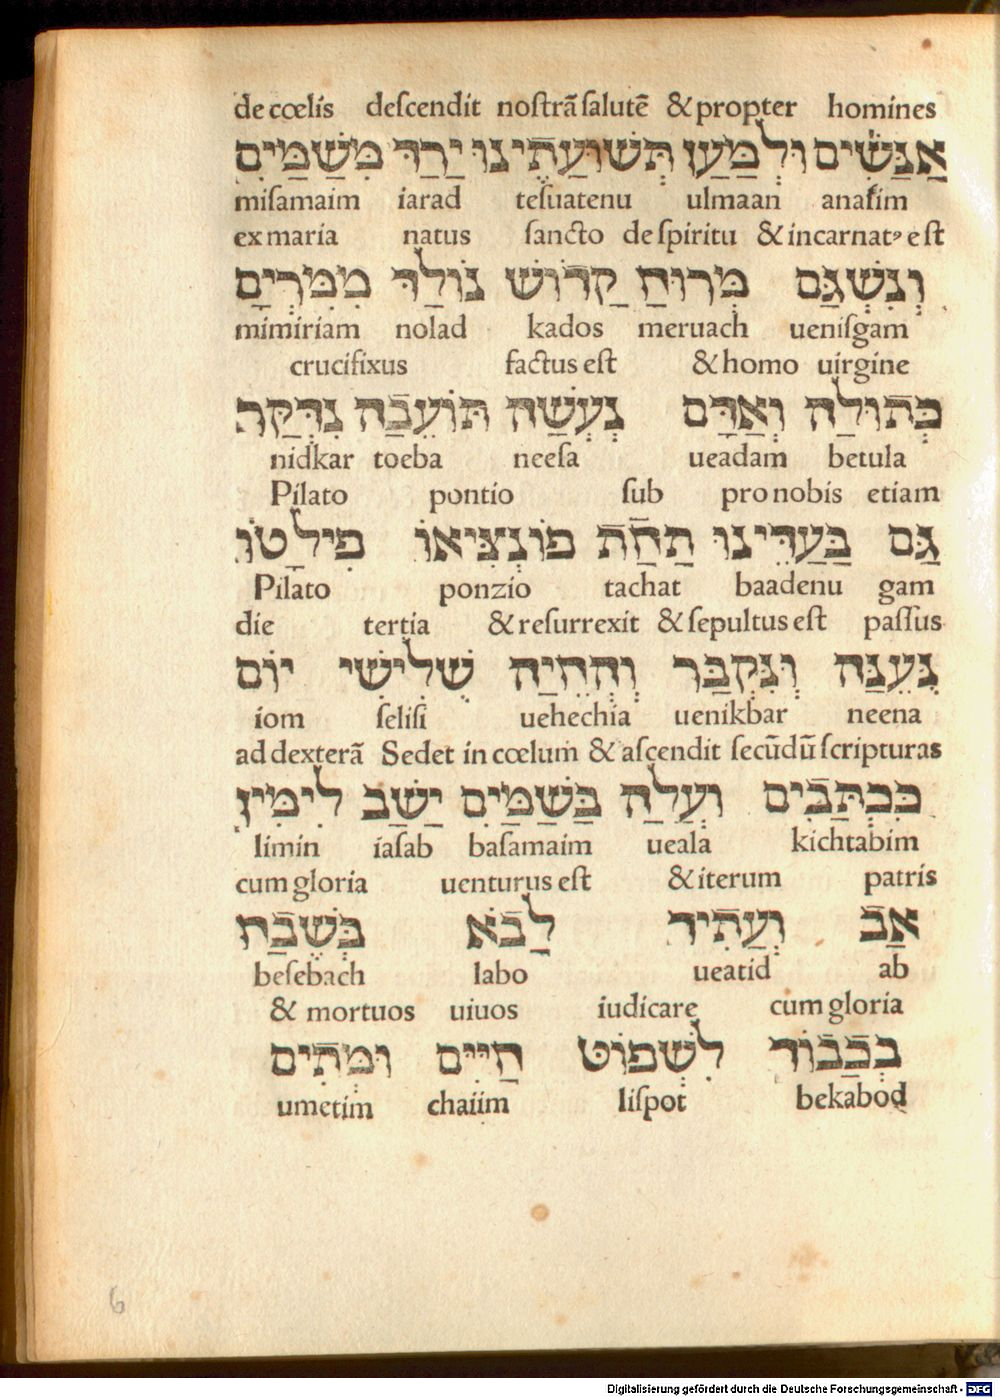 de cœlis descendit nostrā salutē & propter homines
אֲנַשִׁים וּלְמַעַן תְּשׁוּעָתֵינוּ יַרַד מִשַּׁמַּיִם
misamaim iarad tesuatenu ulmaan anasim
ex maria natus sancto de spiritu & incarnatꝰ est
וְנִשְׁגַּם מְרוּחַ קַדוֹשׁ נוֹלַד מִמִּרְיָם
mimiriam nolad kados meruach uenisgam
crucifixus factus est & homo uirgine
בְּתוּלַה וְאַדָּם נֶעְשָׂה תּוֹעֵבַה נִדְקַר
nidkar toeba neesa ueadam betula
Pilato pontio sub pro nobis etiam
גַּם בַּעַדֵינוּ תַחַת פוֹנְצִיאוֹ פִילָטוֹ
Pilato ponzio tachat baadenu gam
die tertia & resurrexit & sepultus est passus
נֶעֵנַה וְנִקְבַּר וְהֶחִיַה שְׁלִישִׁי יוֹם
iom selisi uehechia uenikbar neena
ad dexterā Sedet in cœlum & ascendit secūdū scripturas
כִּכְתָּבִים וְעַלַה בַּשַּׁמַּיִם יַשַׁב לִימִין
limin iasab basamaim ueala kichtabim
cum gloria uenturus est & iterum patris
אַב וְעַתִיד לַבֹא בְּשֶׁבַח
besebach labo ueatid ab
& mortuos uiuos iudicare cum gloria
בְּכַבוֹד לִשְׁפּוֹט חַיִּים וּמְתִים
umetim chaiim lispot bekabod
6
Digitalisierung gefördert durch die Deutsche Forschungsgemeinschaft - DFG